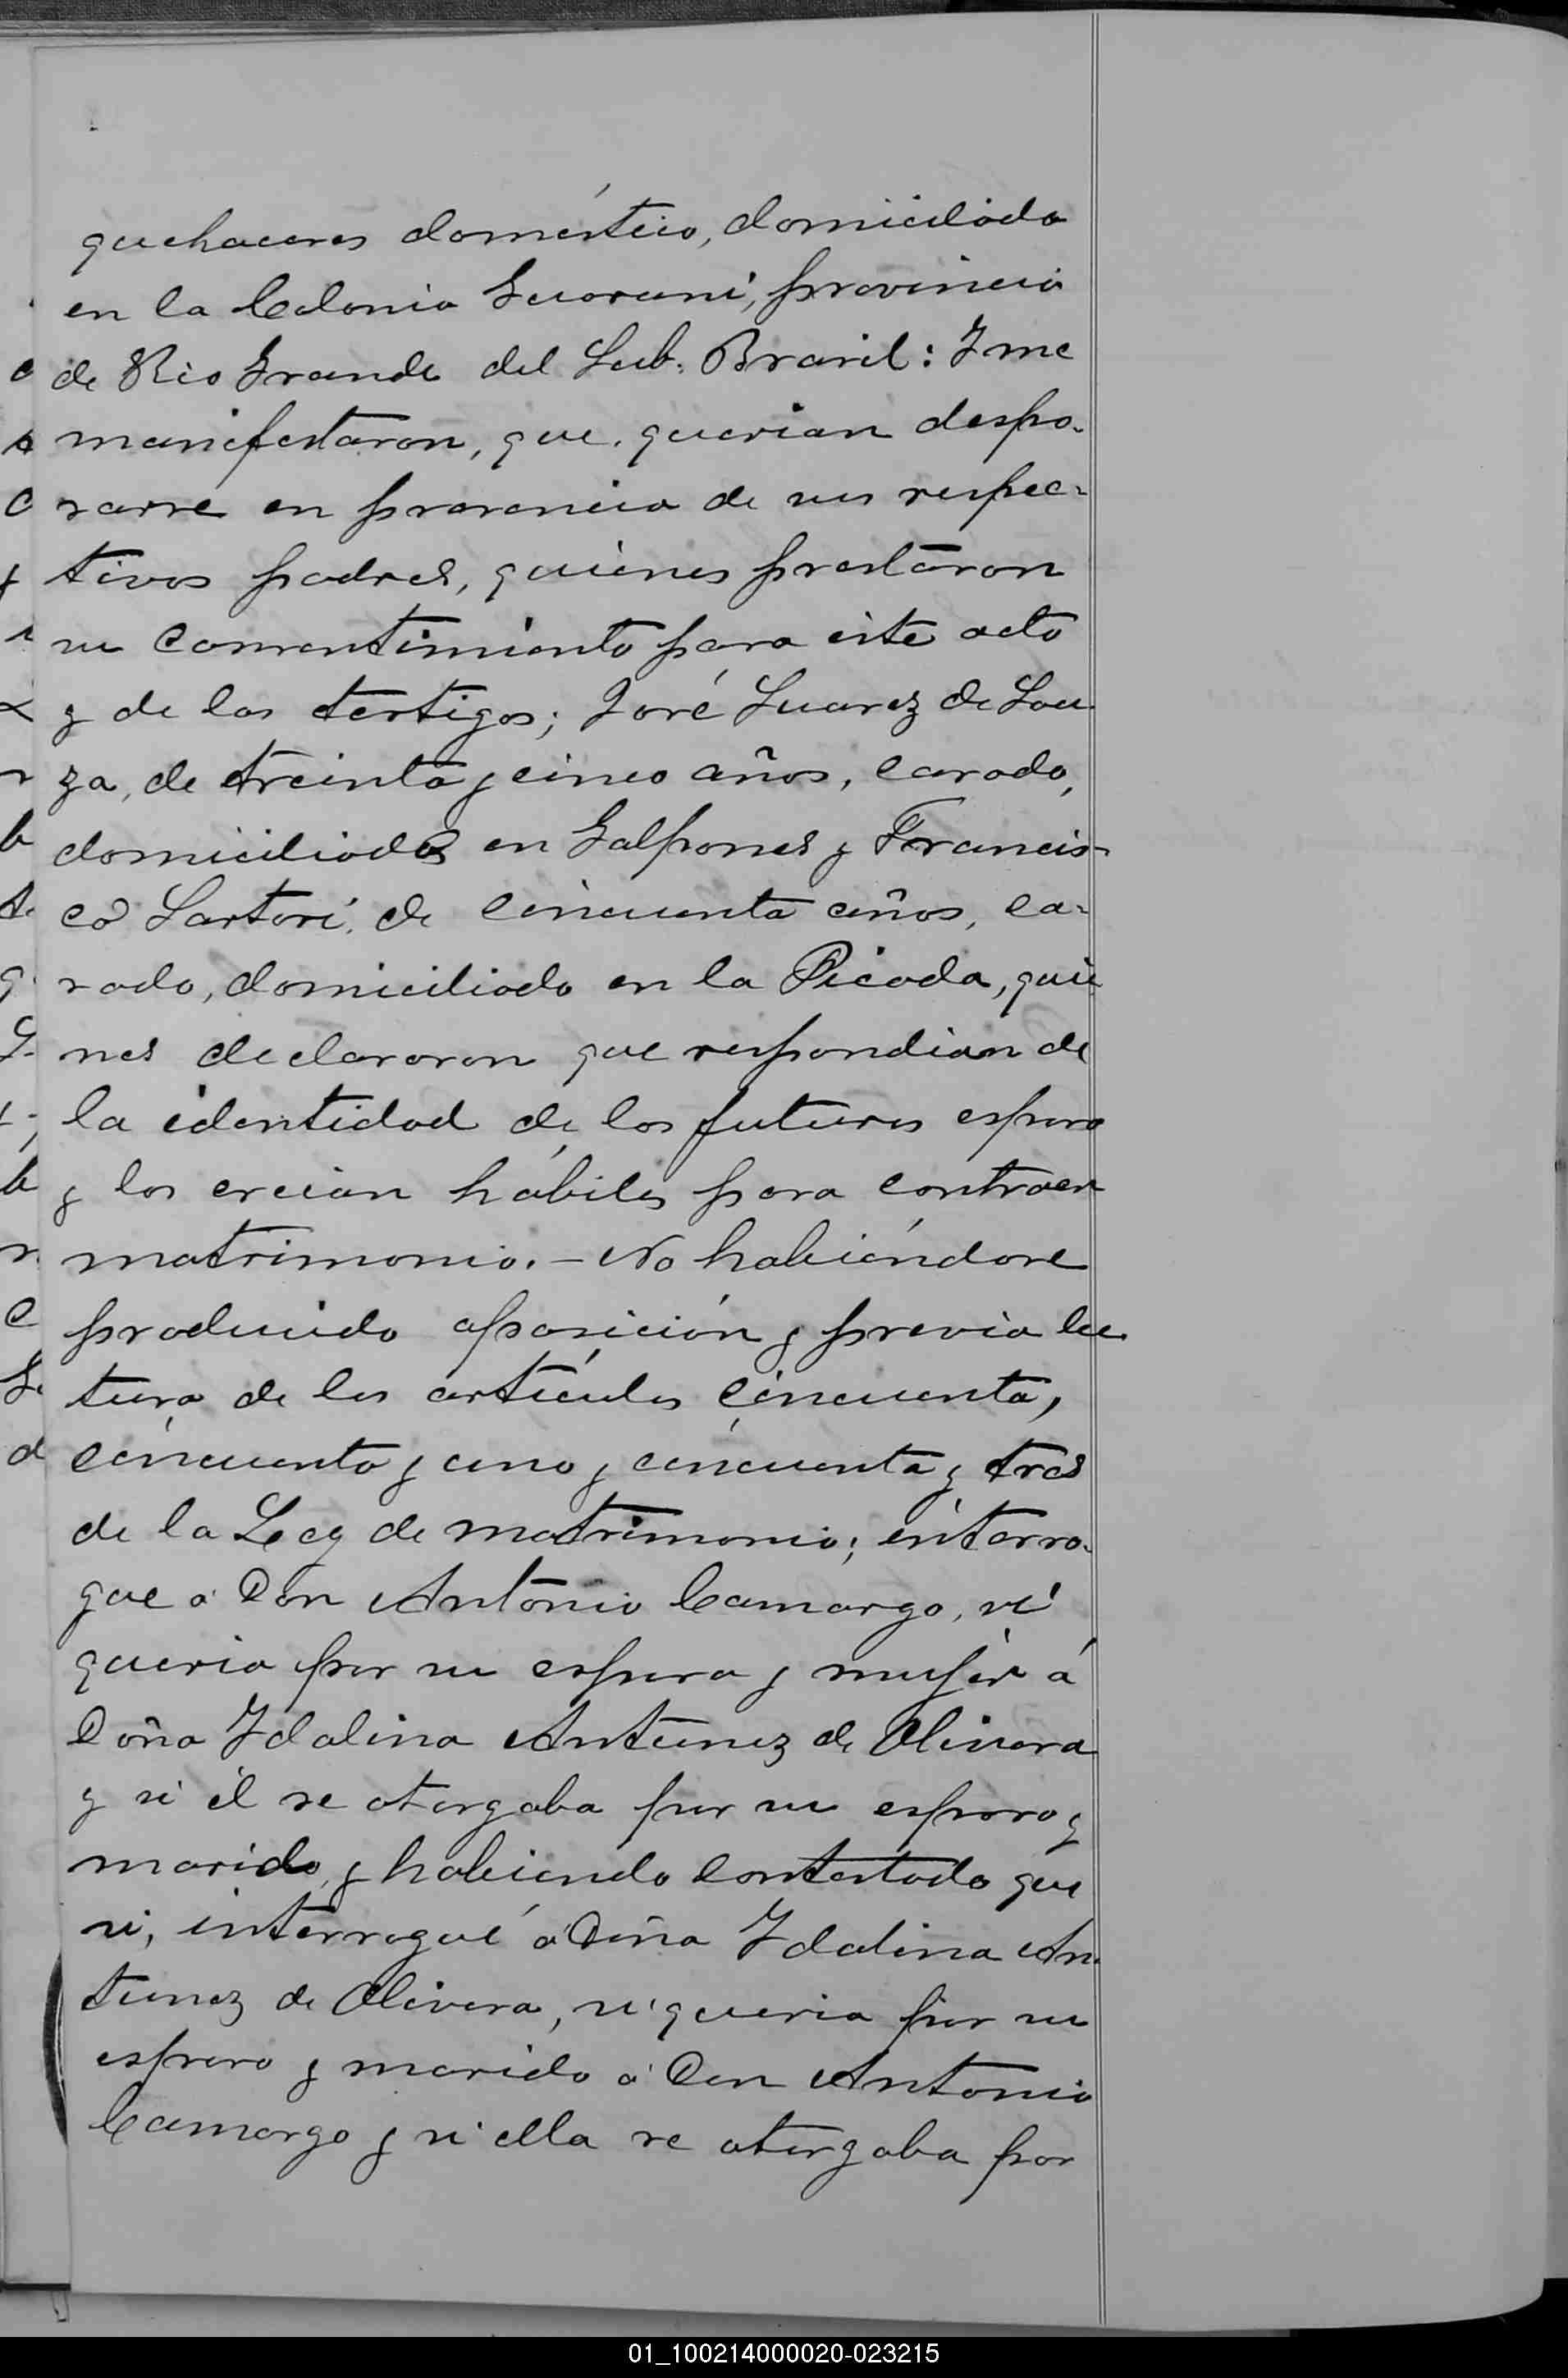 quehaceres doméstico, domiciliada
en la Colonia Guarani, provincia
de Rio Grande del Sub. Brasil: Y me
manifestaron, que querian despo-
sarse en presencia de sus respec-
tivos padres, quienes prestaron
su consentimiento para este acto
y de los testigos; José Suarez de Sou
za, de treinta y cinco años, casado,
domiciliado en Galpones y Francis-
co Sartori, de cincuenta años, ca-
sado, domiciliado en la Picada, quie
nes declararon que respondian de
la identidad de los futuros esposo
y los creian hábiles para contraer
matrimonio.- No habiéndose
producido oposición y previa lec
tura de los artículos cincuenta,
cincuenta y uno y cincuenta y tres
de la Ley de matrimonio; interro-
gue a Don Antonio Camargo, si
queria por su esposa y mujer á
Doña Idalina Antunez de Olivera
y si él se otorgaba por su esposo y
marido, y habiendo contestado que
si, interrogué á Doña Idalina An-
tunez de Olivera, si queria por su
esposo y marido a Don Antonio
Camargo y si ella se otorgaba por
01_100214000020-023215